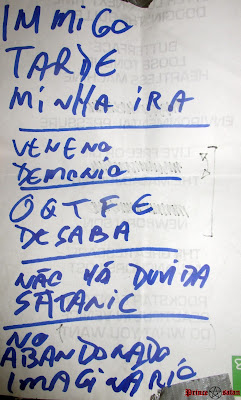 IMMIGO
TARDE
MINHA IRA
VENENO
DEMONIO
OQTFE
DESABA
NÃO HÁ DUVIDA
SATANIC
NO
ABANDONADO
IMAGINÁRIO
Prince satan